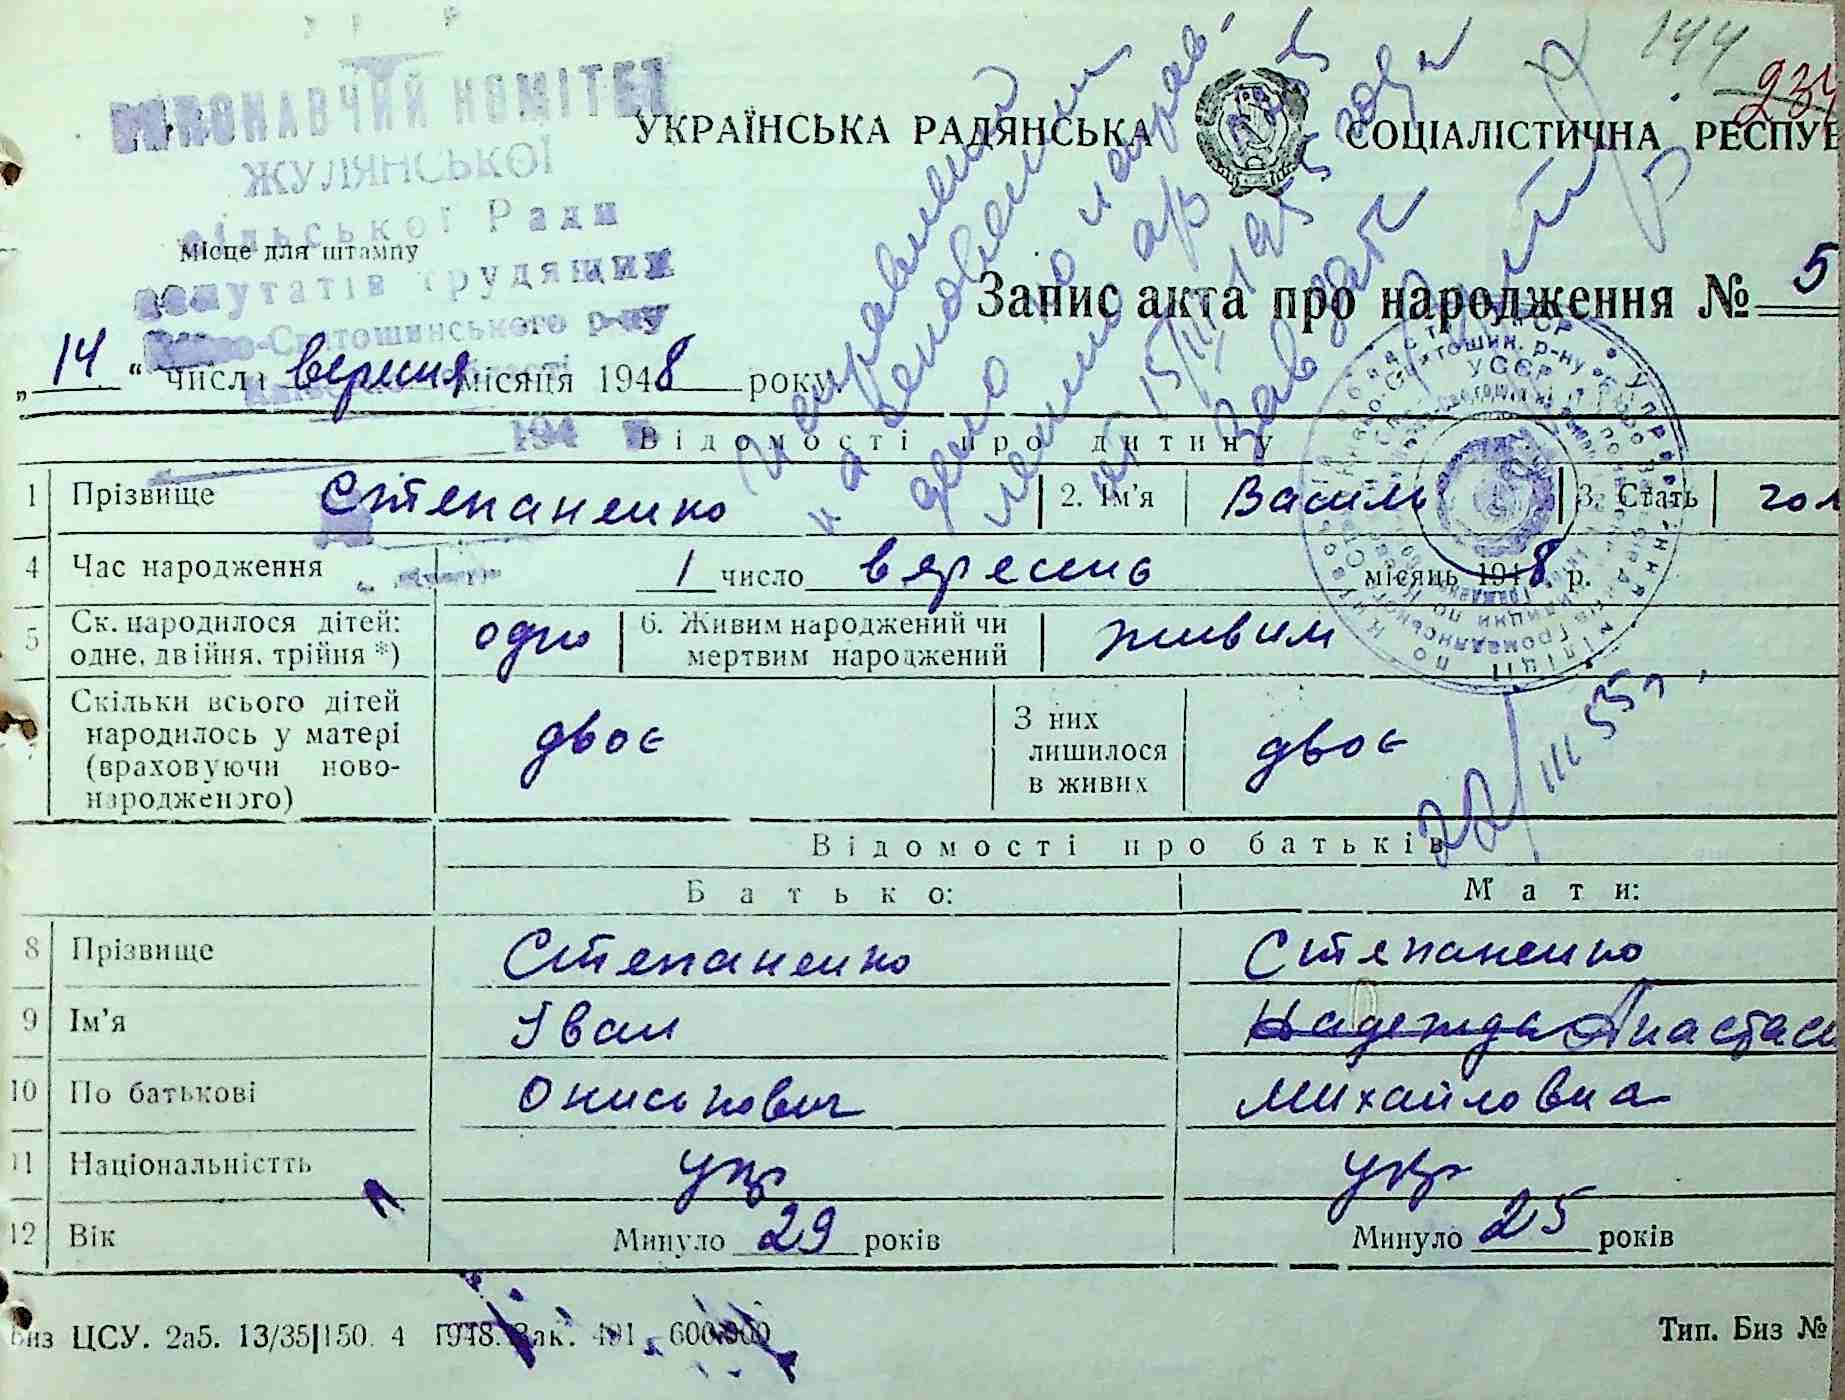 144
234
ВИКОНАВЧИЙ КОМІТЕТ
ЖУЛЯНСЬКОЇ
сільської Ради
депутатів трудящих
Києво-Святошинського р-ну
194
УКРАЇНСЬКА РАДЯНСЬКА СОЦІАЛІСТИЧНА РЕСПУБ
Місце для штампу
Запис акта про народження № 5
„ 14 “ числа вересня місяця 1948 року
Исправлений
и
дело
15/III 1955 года
Зав загс
22/III 55 г.
Відомості про дитину
1 Прізвище Степаненко 2. Ім'я Василь 3. Стать чол
4 Час народження 1 число вересень місяць 1948 р.
5 Ск. народилося дітей: одне, двійня, трійня *) одно 6. Живим народжений чи мертвим народжений живим
Скільки всього дітей народилось у матері (враховуючи ново-народженого) двоє З них лишилося в живих двоє
Відомості про батьків
Батько: Мати:
8 Прізвище Степаненко Степаненко
9 Ім'я Іван Надежда Анастаси
10 По батькові Ониськович Михайловна
11 Національністть укр укр
12 Вік Минуло 29 років Минуло 25 років
Биз ЦСУ. 2а5. 13/35|150. 4 1948. Зак. 491. 600.000 Тип. Биз №